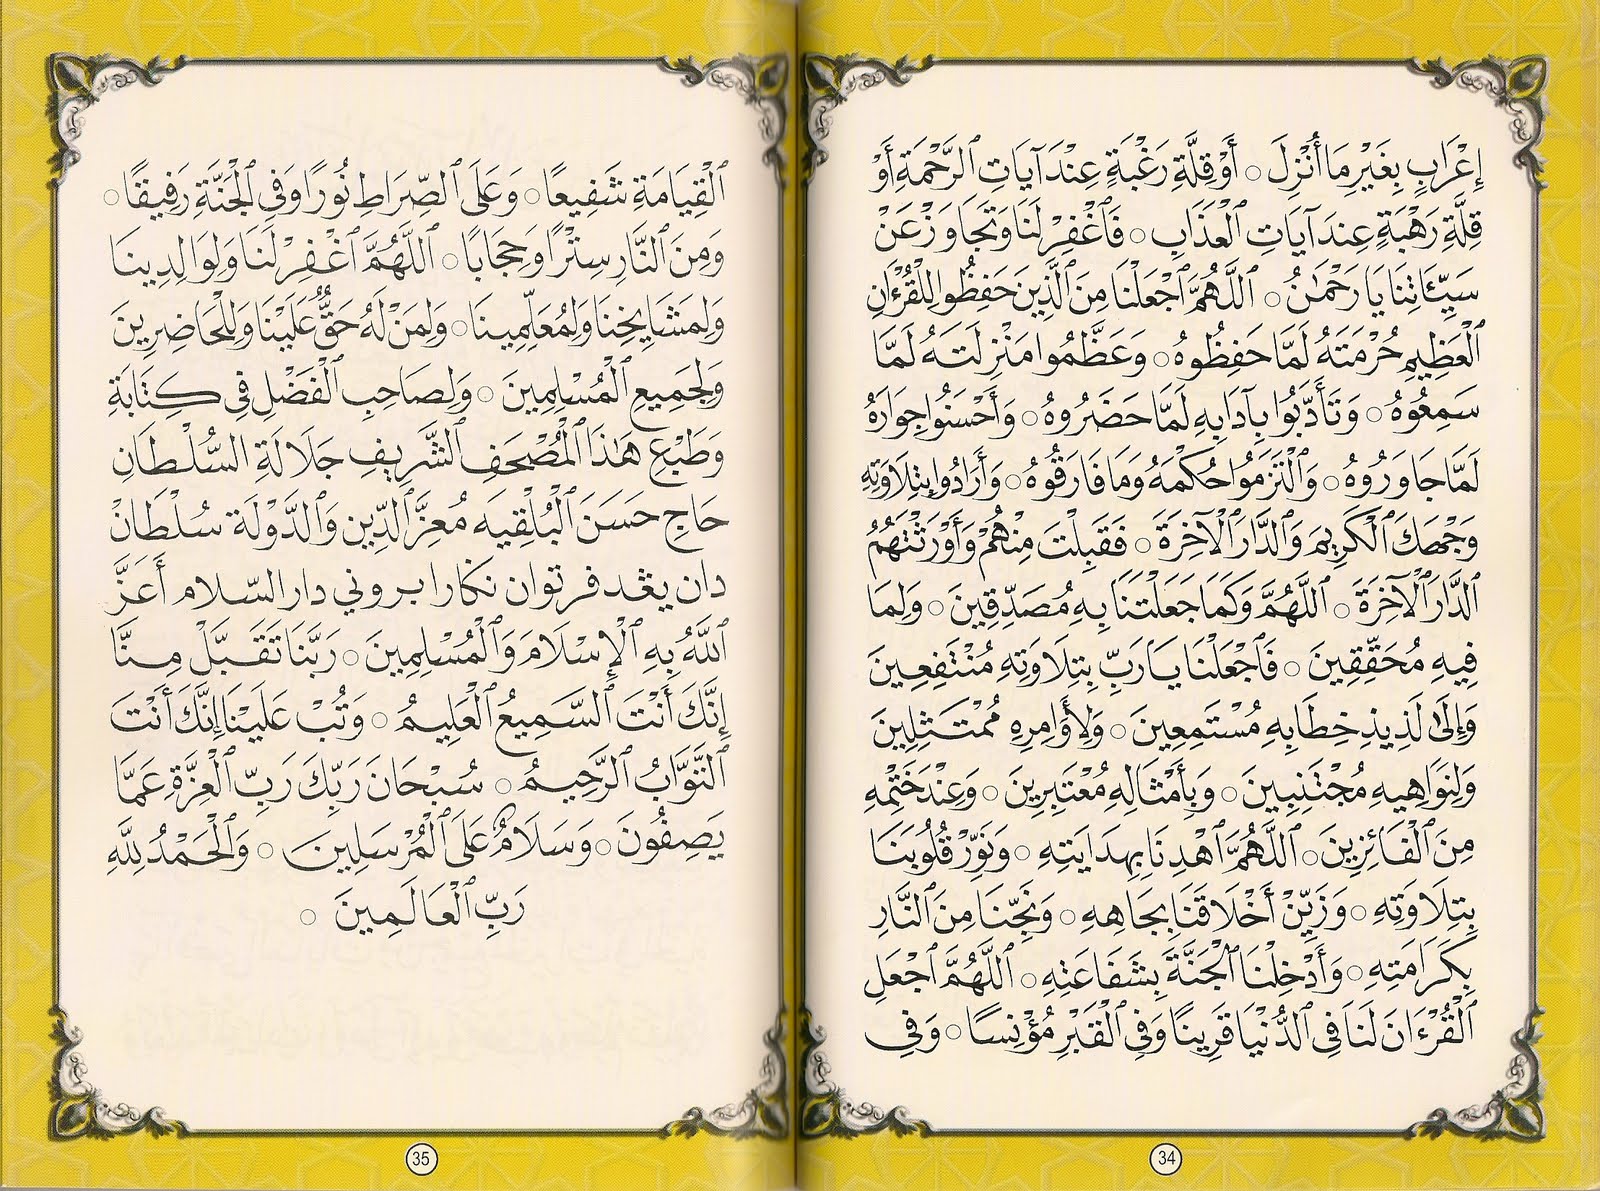 إِعْرَابٍ بِغَيْرِ مَا أُنْزِلَ ○ أَوْ قِلَّةِ رَغْبَةٍ عِنْدَ آيَاتِ ٱلرَّحْمَةِ أَوْ
قِلَّةِ رَهْبَةٍ عِنْدَ آيَاتِ ٱلْعَذَابِ ○ فَٱغْفِرْ لَنَا وَتَجَاوَزْ عَنْ
سَيِّـَٔاتِنَا يَا رَحْمَٰنُ ○ ٱللَّهُمَّ ٱجْعَلْنَا مِنَ ٱلَّذِينَ حَفِظُوا لِلْقُرْءَانِ
ٱلْعَظِيمِ حُرْمَتَهُ لَمَّا حَفِظُوهُ ○ وَعَظَّمُوا مَنْزِلَتَهُ لَمَّا
سَمِعُوهُ ○ وَتَأَدَّبُوا بِآدَابِهِ لَمَّا حَضَرُوهُ ○ وَأَحْسَنُوا جِوَارَهُ
لَمَّا جَاوَرُوهُ ○ وَٱلْتَزَمُوا حُكْمَهُ وَمَا فَارَقُوهُ ○ وَأَرَادُوا بِتِلَاوَتِهِ
وَجْهَكَ ٱلْكَرِيمَ وَٱلدَّارَ ٱلْآخِرَةَ ○ فَقَبِلْتَ مِنْهُمْ وَأَوْرَثْتَهُمُ
ٱلدَّارَ ٱلْآخِرَةَ ○ ٱللَّهُمَّ وَكَمَا جَعَلْتَنَا بِهِ مُصَدِّقِينَ ○ وَلِمَا
فِيهِ مُحَقِّقِينَ ○ فَٱجْعَلْنَا يَا رَبِّ بِتِلَاوَتِهِ مُنْتَفِعِينَ
وَإِلَىٰ لَذِيذِ خِطَابِهِ مُسْتَمِعِينَ ○ وَلِأَوَامِرِهِ مُمْتَثِلِينَ
وَلِنَوَاهِيهِ مُجْتَنِبِينَ ○ وَبِأَمْثَالِهِ مُعْتَبِرِينَ ○ وَعِنْدَ خَتْمِهِ
مِنَ ٱلْفَائِزِينَ ○ ٱللَّهُمَّ ٱهْدِنَا بِهِدَايَتِهِ ○ وَنَوِّرْ قُلُوبَنَا
بِتِلَاوَتِهِ ○ وَزَيِّنْ أَخْلَاقَنَا بِجَاهِهِ ○ وَنَجِّنَا مِنَ ٱلنَّارِ
بِكَرَامَتِهِ ○ وَأَدْخِلْنَا ٱلْجَنَّةَ بِشَفَاعَتِهِ ○ ٱللَّهُمَّ ٱجْعَلِ
ٱلْقُرْءَانَ لَنَا فِي ٱلدُّنْيَا قَرِينًا وَفِي ٱلْقَبْرِ مُؤْنِسًا ○ وَفِي
34
ٱلْقِيَامَةِ شَفِيعًا ○ وَعَلَى ٱلصِّرَاطِ نُورًا وَفِي ٱلْجَنَّةِ رَفِيقًا ○
وَمِنَ ٱلنَّارِ سِتْرًا وَحِجَابًا ○ ٱللَّهُمَّ ٱغْفِرْ لَنَا وَلِوَالِدِينَا
وَلِمَشَايِخِنَا وَلِمُعَلِّمِينَا ○ وَلِمَنْ لَهُ حَقٌّ عَلَيْنَا وَلِلْحَاضِرِينَ
وَلِجَمِيعِ ٱلْمُسْلِمِينَ ○ وَلِصَاحِبِ ٱلْفَضْلِ فِي كِتَابَةِ
وَطَبْعِ هَٰذَا ٱلْمُصْحَفِ ٱلشَّرِيفِ جَلَالَةِ السُّلْطَانِ
حَاجِ حَسَنَ ٱلْبُلْقِيَه مُعِزِّ ٱلدِّينِ وَٱلدَّوْلَة سُلْطَانْ
دان يڠد فرتوان نكارا بروني دار السّلام أَعَزَّ
ٱللَّهُ بِهِ ٱلْإِسْلَامَ وَٱلْمُسْلِمِينَ ○ رَبَّنَا تَقَبَّلْ مِنَّا
إِنَّكَ أَنْتَ ٱلسَّمِيعُ ٱلْعَلِيمُ ○ وَتُبْ عَلَيْنَا إِنَّكَ أَنْتَ
ٱلتَّوَّابُ ٱلرَّحِيمُ ○ سُبْحَانَ رَبِّكَ رَبِّ ٱلْعِزَّةِ عَمَّا
يَصِفُونَ ○ وَسَلَامٌ عَلَى ٱلْمُرْسَلِينَ ○ وَٱلْحَمْدُ لِلَّهِ
رَبِّ ٱلْعَالَمِينَ ○
35